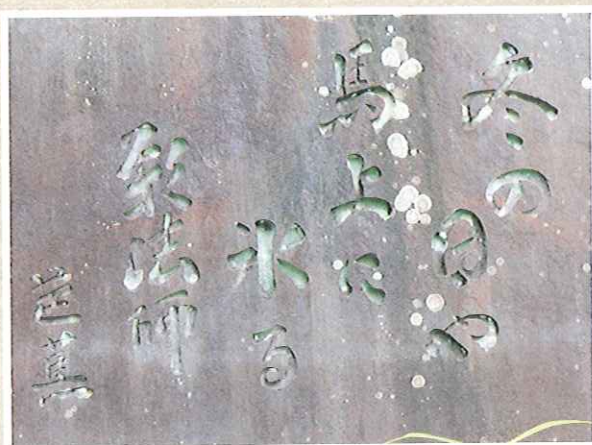 冬の
日や
馬上に
氷る
影法師
芭蕉